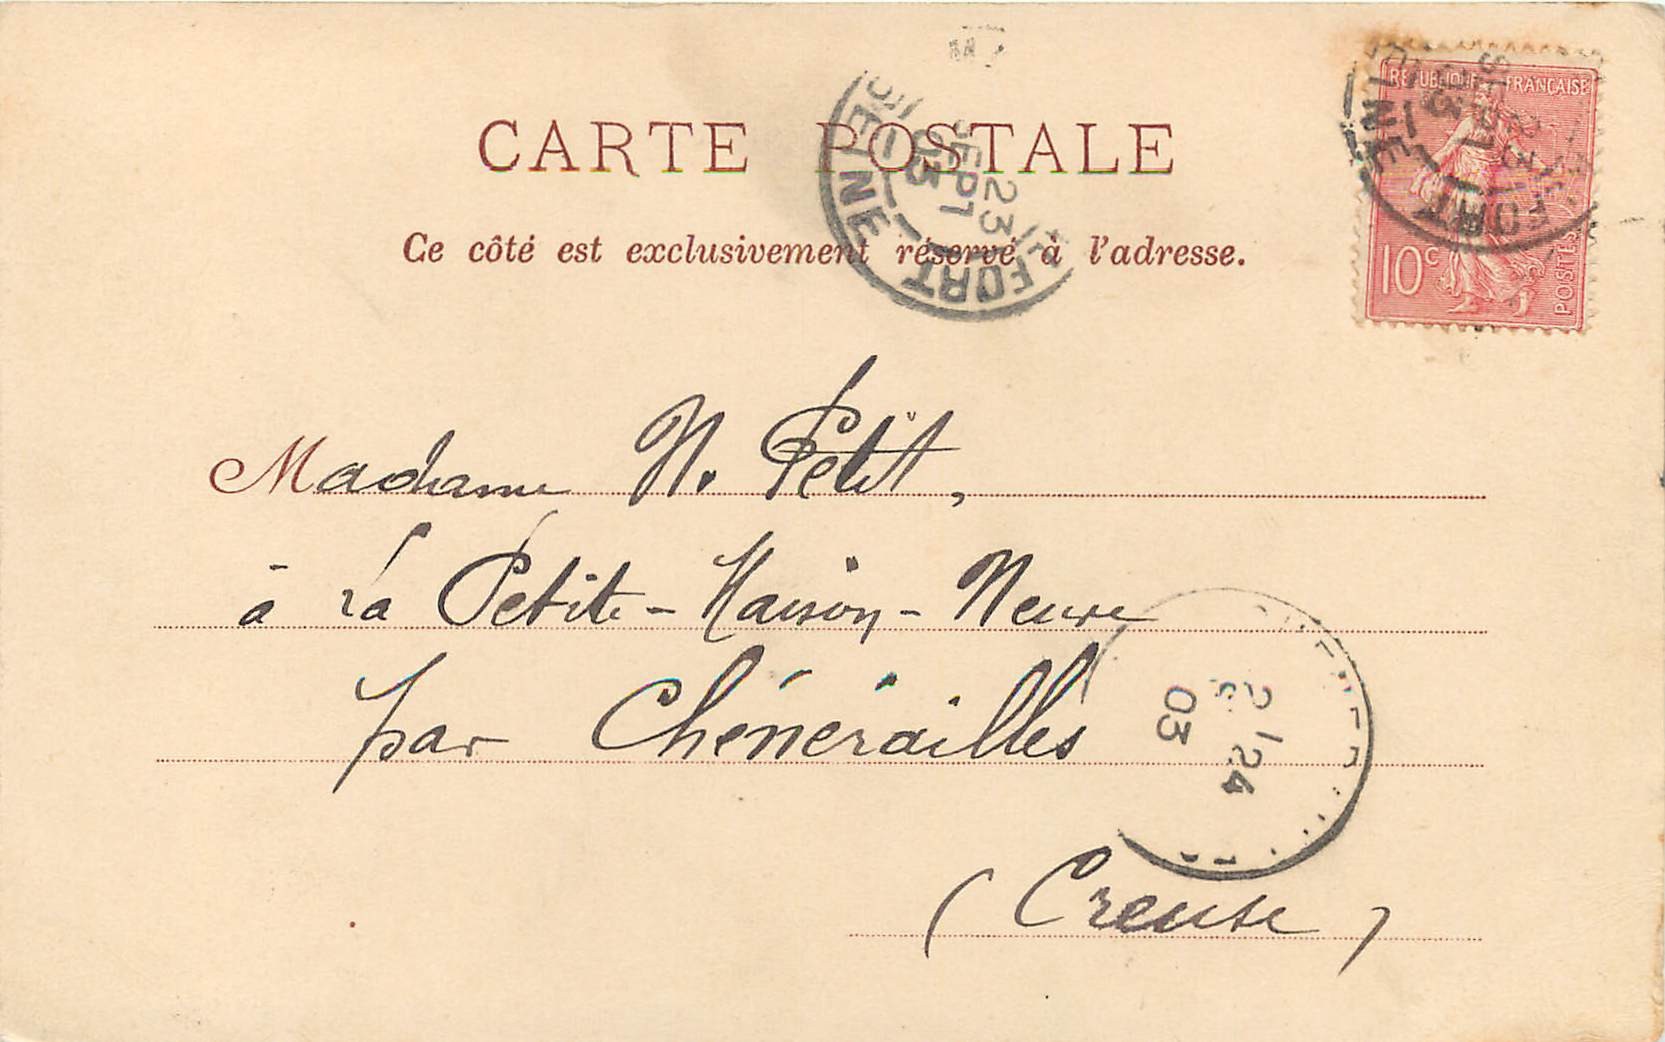 CARTE POSTALE
Ce côté est exclusivement réservé à l'adresse.
RÉPUBLIQUE FRANÇAISE
10c
POSTES
23
SEPT
03
FORT
SEINE
Madame N. Petit,
à La Petite-Maison-Neuve
par Chénérailles
(Creuse)
24
03